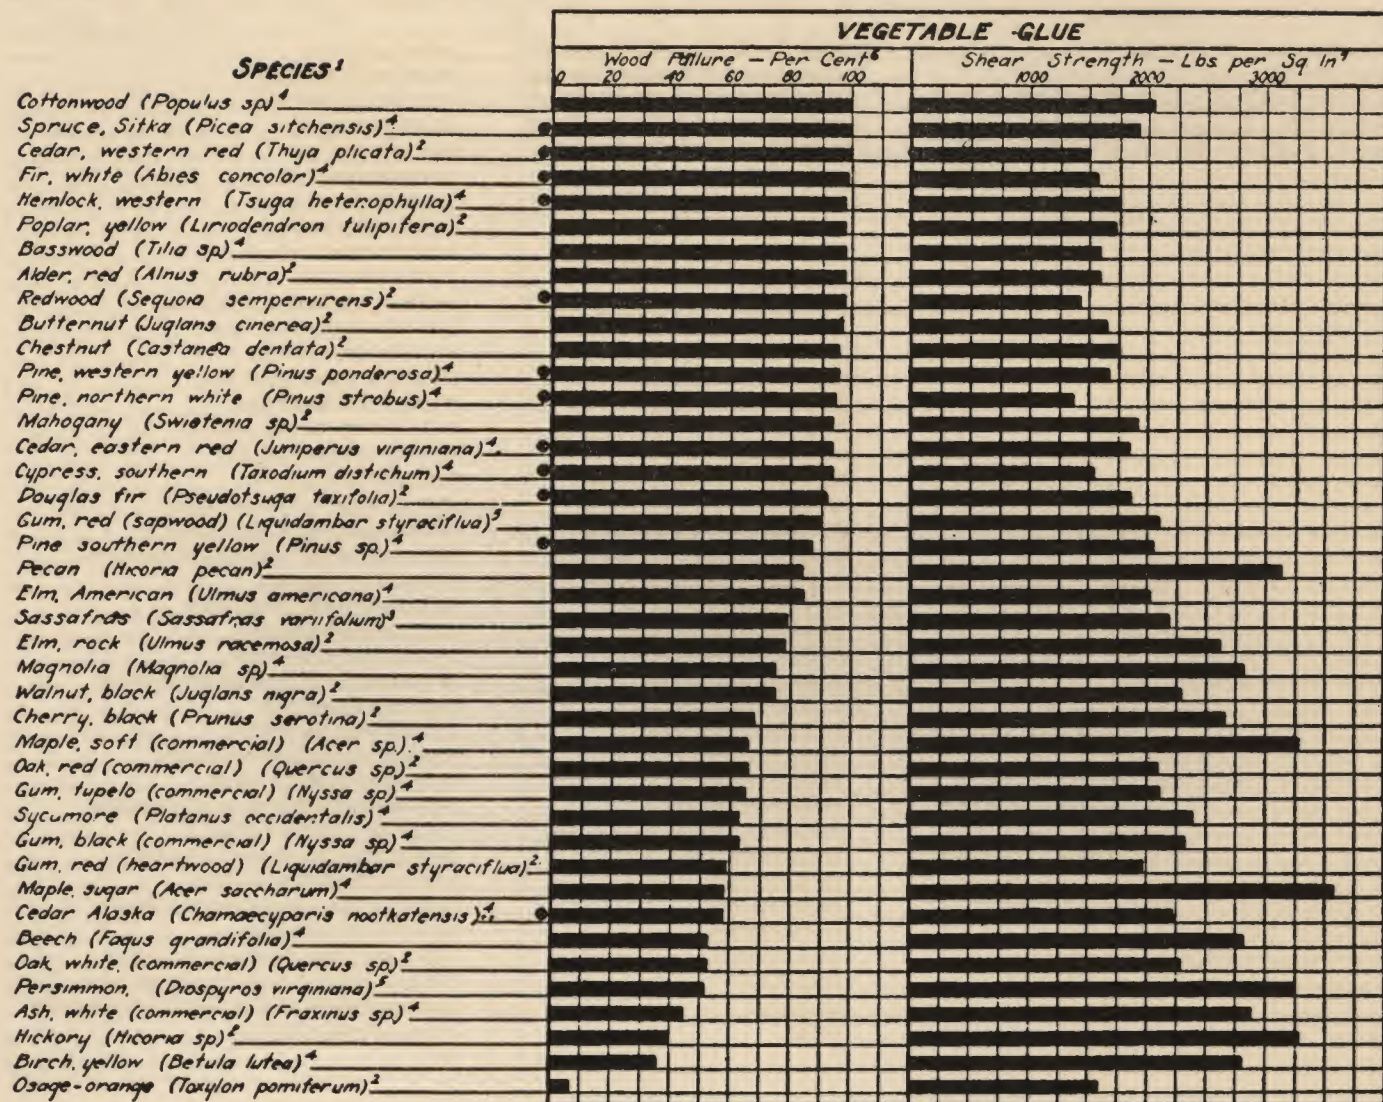 VEGETABLE -GLUE
SPECIES¹
Wood Failure — Per Cent⁶
Shear Strength — Lbs per Sq In⁷
0 20 40 60 80 100
1000 2000 3000
Cottonwood (Populus sp)⁴
Spruce, Sitka (Picea sitchensis)⁴
Cedar, western red (Thuja plicata)²
Fir, white (Abies concolor)⁴
Hemlock, western (Tsuga heterophylla)⁴
Poplar, yellow (Liriodendron tulipifera)²
Basswood (Tilia sp)⁴
Alder, red (Alnus rubra)²
Redwood (Sequoia sempervirens)²
Butternut (Juglans cinerea)²
Chestnut (Castanea dentata)²
Pine, western yellow (Pinus ponderosa)⁴
Pine, northern white (Pinus strobus)⁴
Mahogany (Swietenia sp)²
Cedar, eastern red (Juniperus virginiana)⁴
Cypress, southern (Taxodium distichum)⁴
Douglas fir (Pseudotsuga taxifolia)²
Gum, red (sapwood) (Liquidambar styraciflua)⁵
Pine southern yellow (Pinus sp.)⁴
Pecan (Hicoria pecan)²
Elm, American (Ulmus americana)⁴
Sassafras (Sassafras variifolium)³
Elm, rock (Ulmus racemosa)²
Magnolia (Magnolia sp)⁴
Walnut, black (Juglans nigra)²
Cherry, black (Prunus serotina)²
Maple, soft (commercial) (Acer sp.)⁴
Oak, red (commercial) (Quercus sp)²
Gum, tupelo (commercial) (Nyssa sp)⁴
Sycamore (Platanus occidentalis)⁴
Gum, black (commercial) (Nyssa sp)⁴
Gum, red (heartwood) (Liquidambar styraciflua)²
Maple, sugar (Acer saccharum)⁴
Cedar Alaska (Chamaecyparis nootkatensis)⁴
Beech (Fagus grandifolia)⁴
Oak, white, (commercial) (Quercus sp)²
Persimmon, (Diospyros virginiana)⁵
Ash, white (commercial) (Fraxinus sp)⁴
Hickory (Hicoria sp)²
Birch, yellow (Betula lutea)⁴
Osage-orange (Toxylon pomiferum)²